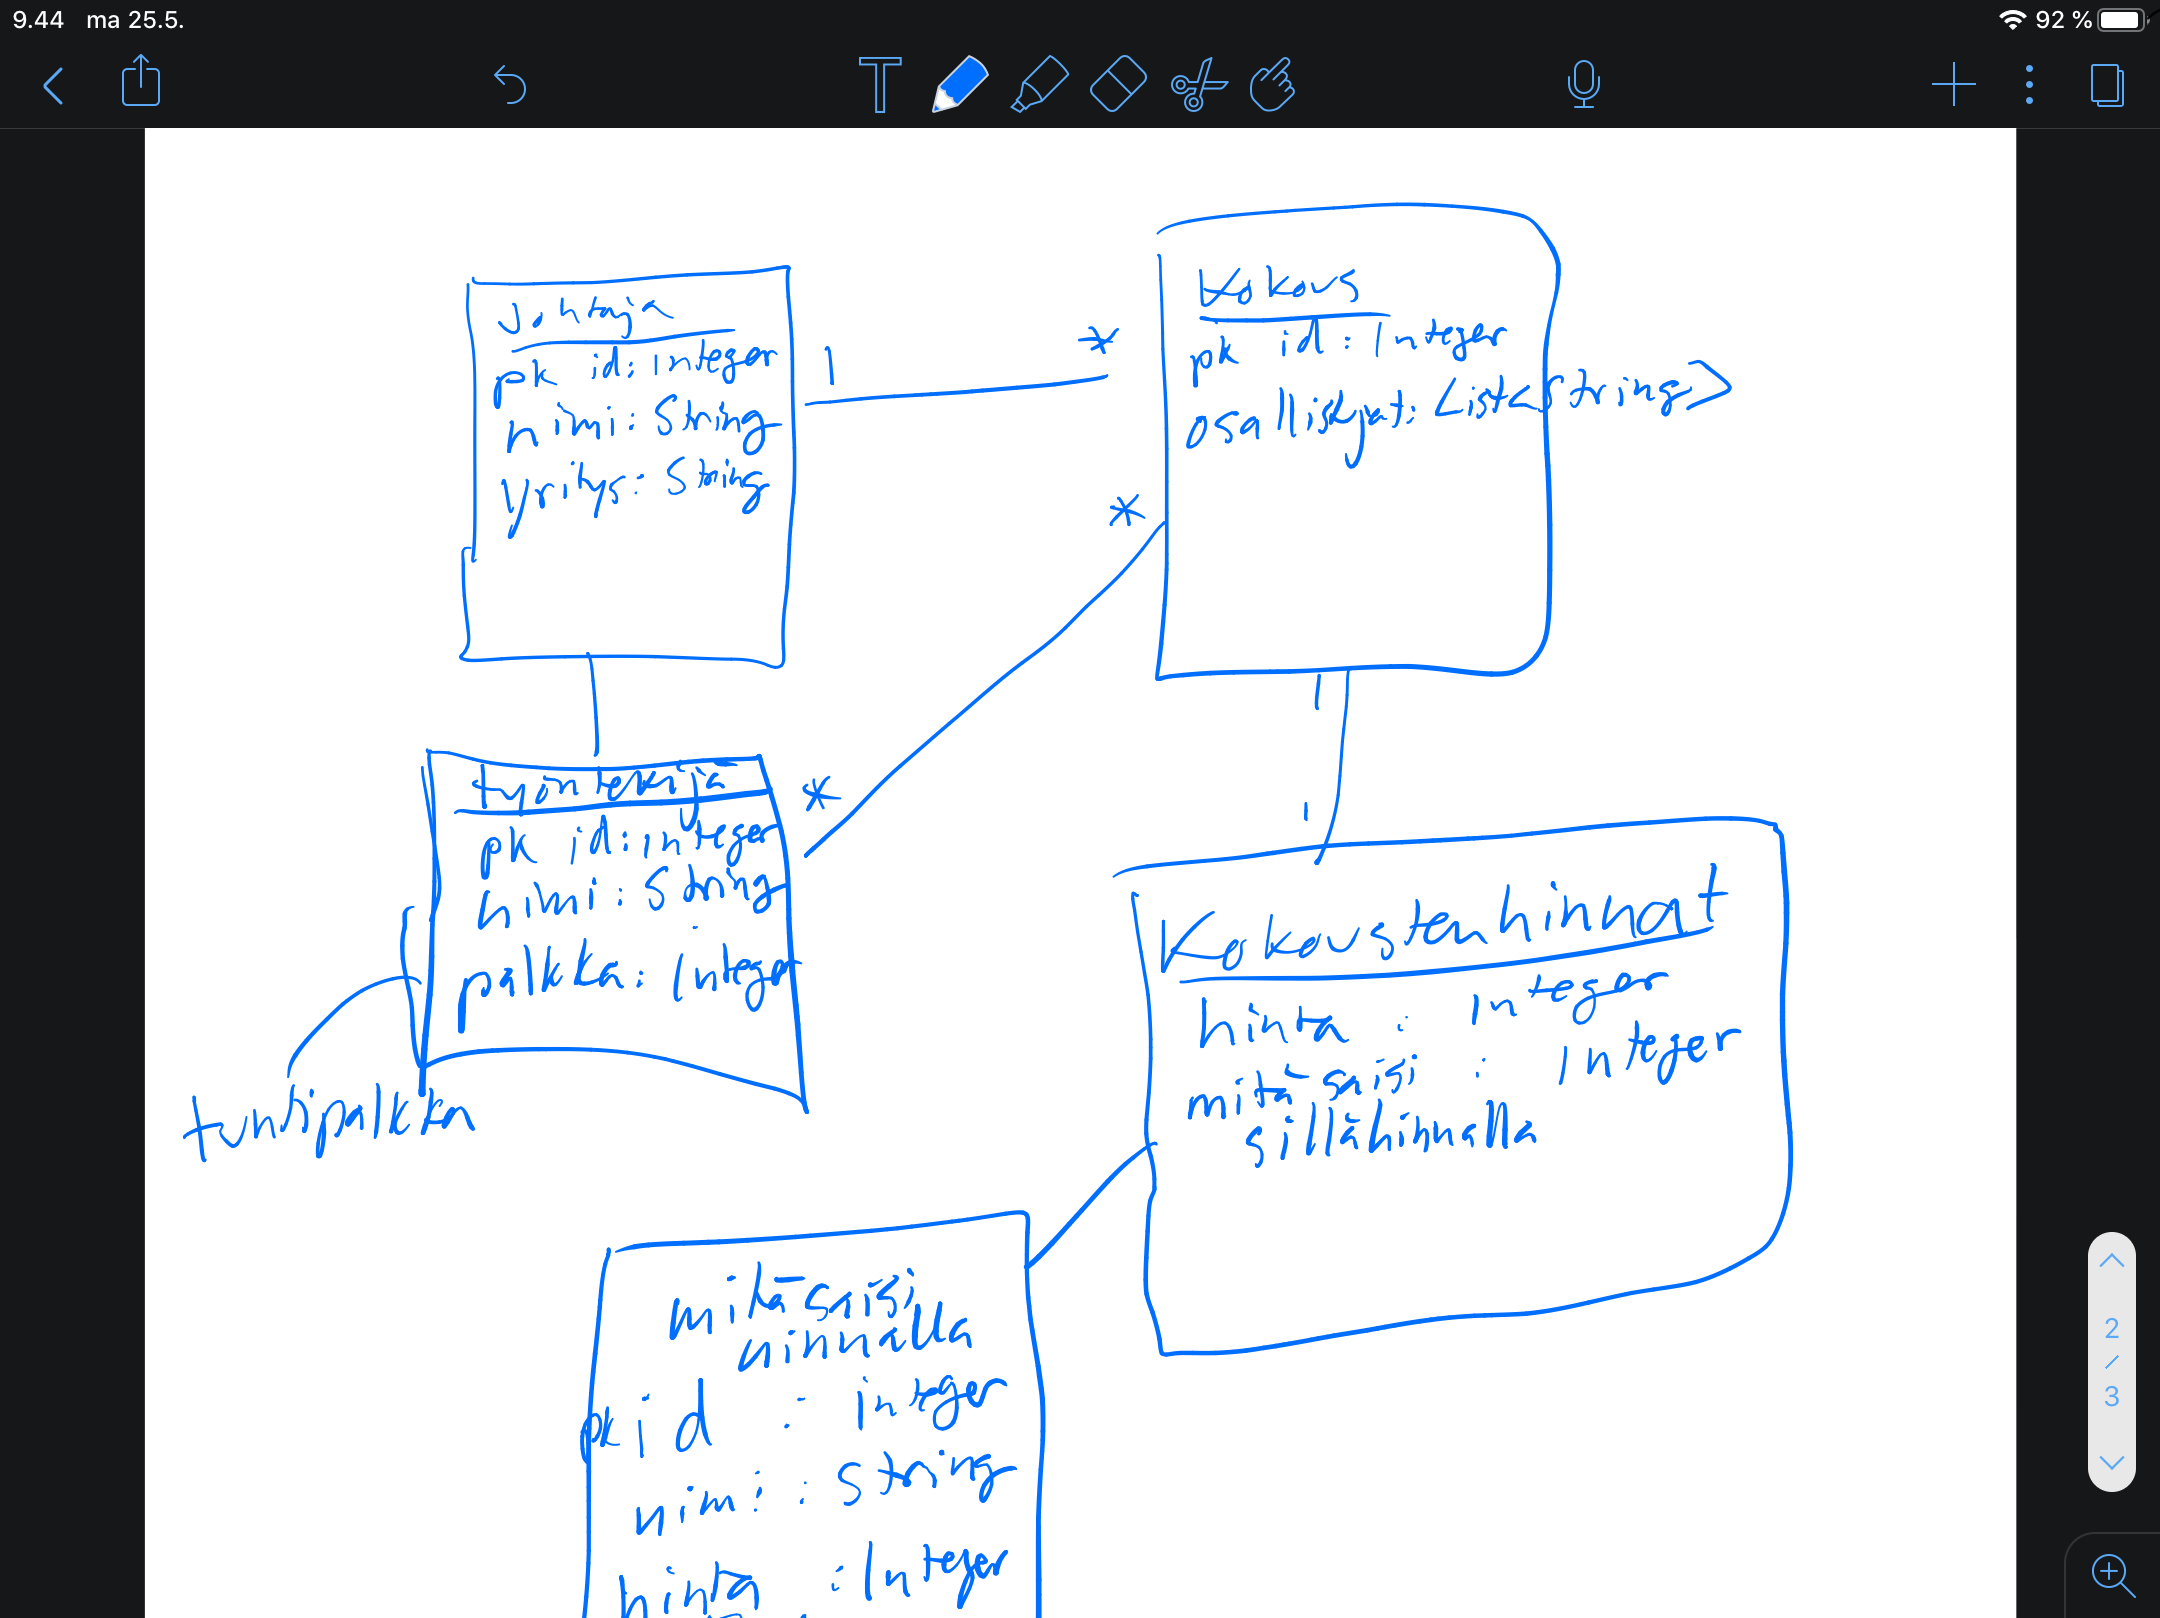 9.44 ma 25.5.
92 %
Johtaja
pk id: integer
nimi: String
yritys: String
1
*
Kokous
pk id: Integer
osallistujat: List<String>
*
työntekijä
pk id: integer
nimi: String
palkka: Integer
*
tuntipalkka
1
1
Kokoustenhinnat
hinta : Integer
mitä saisi : Integer
sillähinnalla
mitä saisi
hinnalla
pk id : integer
nimi : String
hinta : Integer
2
/
3